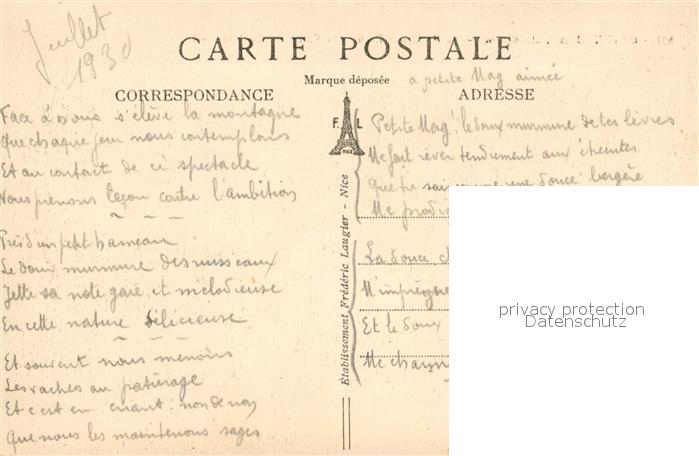 Juillet
1930
CARTE POSTALE
Marque déposée
à petite Mag aimée
CORRESPONDANCE
ADRESSE
Face à nous s'élève la montagne
Que chaque jour nous contemplons
Et au contact de ce spectacle
Nous prenons leçon contre l'ambition
Près d'un petit hameau
Le doux murmure des ruisseaux
Jette sa note gaie et mélodieuse
En cette nature délicieuse
Et souvent nous menons
Les vaches au pâturage
Et c'est en criant : nom de nom
Que nous les maintenons sages
F. L
NICE
Établissement Frédéric Laugier - Nice
Petite Mag', le doux murmure de tes lèvres
Me fait rêver tendrement aux
Que une douce bergère
Me
La douce
M'imprégne
Et le doux
Me
privacy protection
Datenschutz